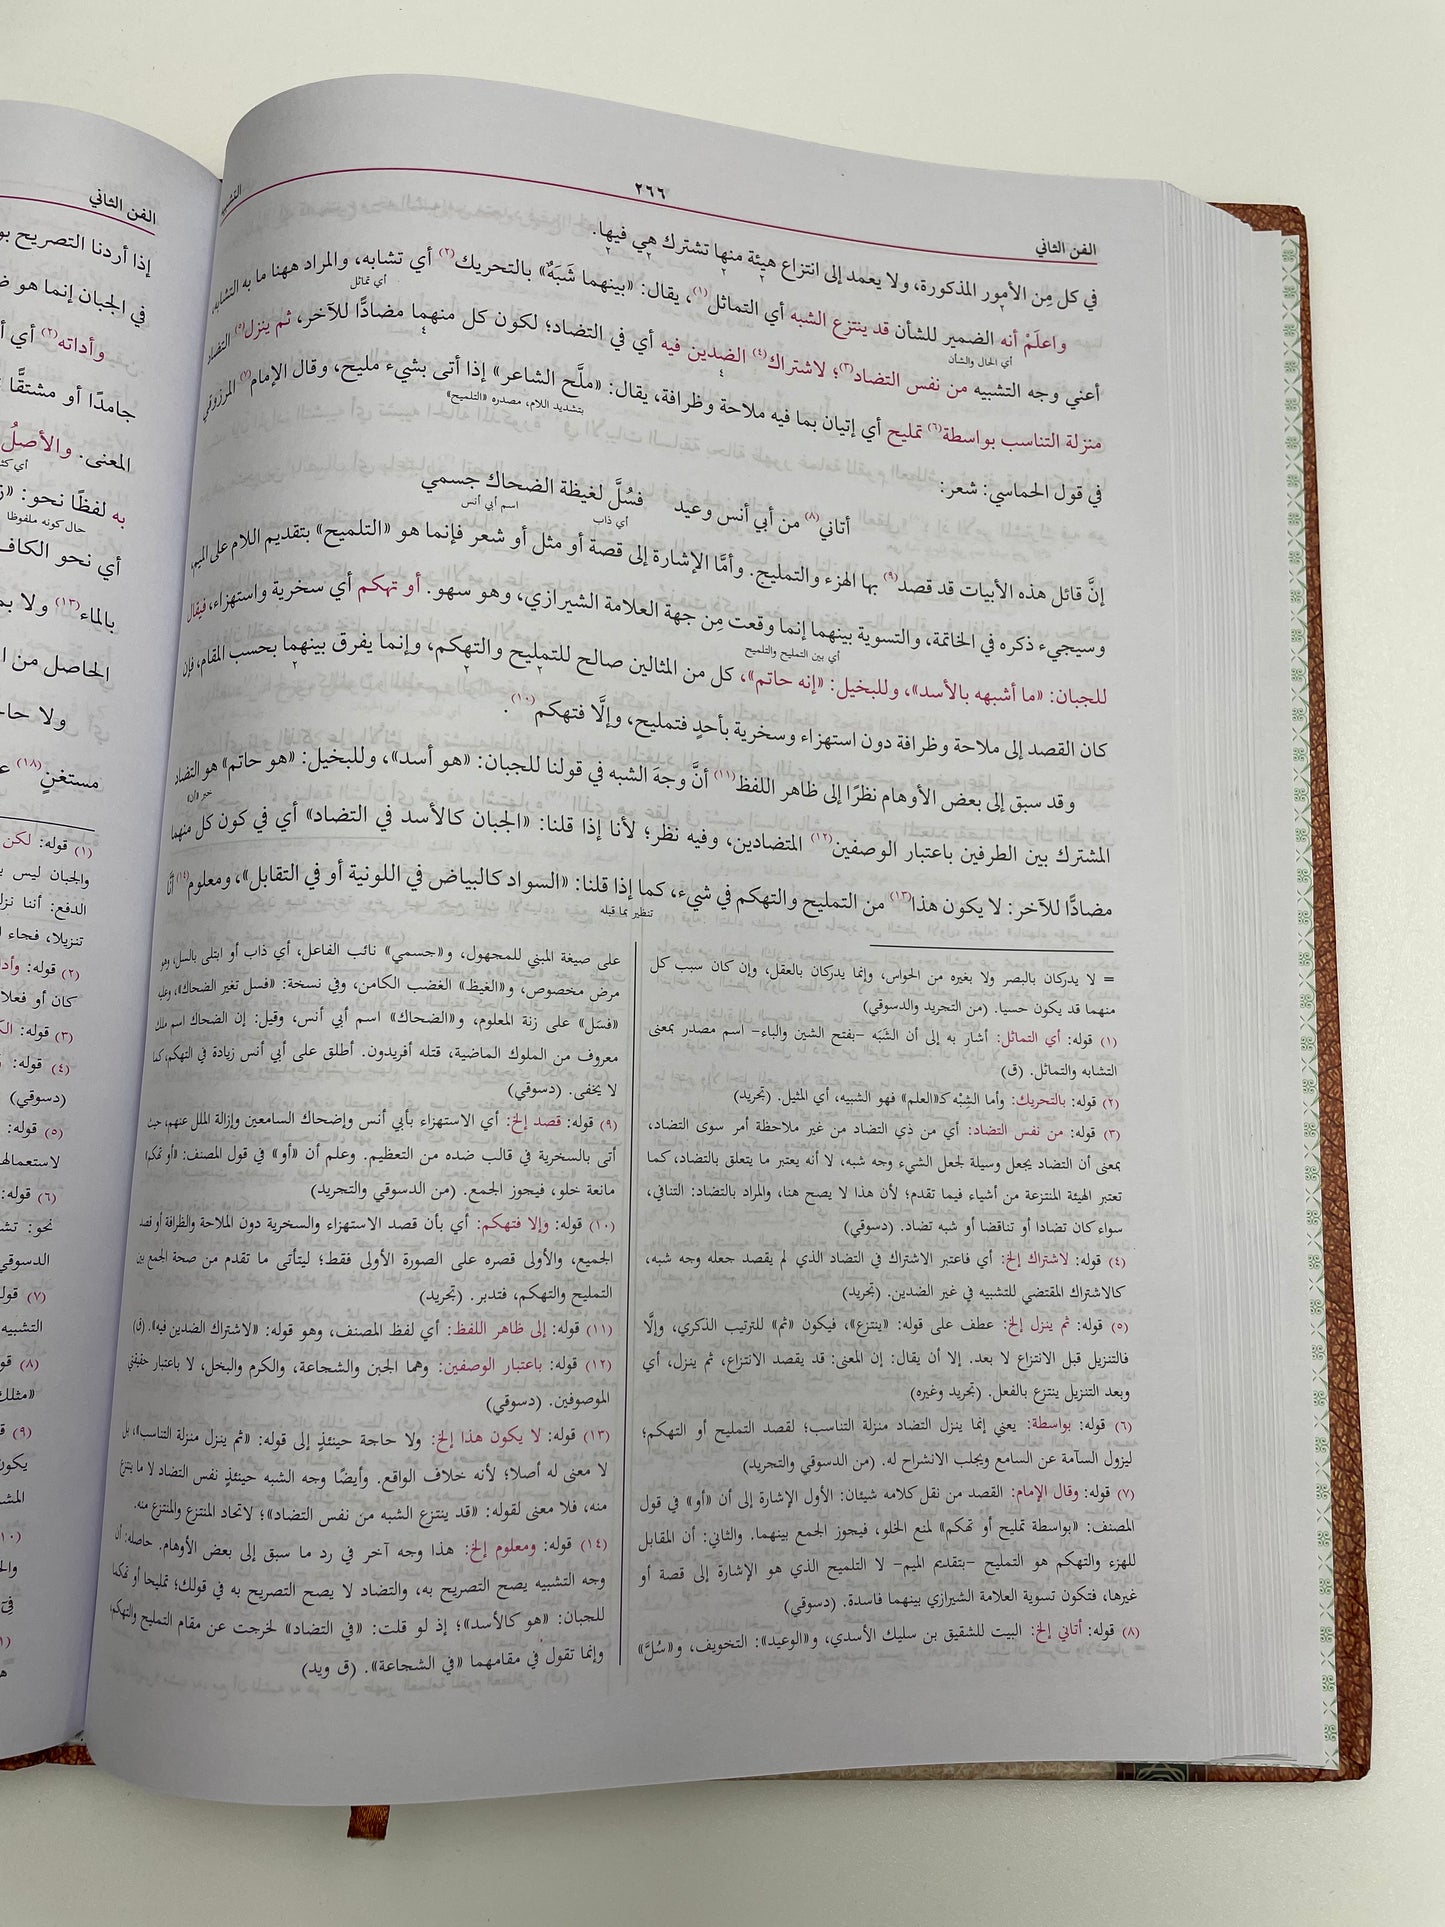 الفن الثاني
٢٦٦
التشبيه
في كل مِن الأمور المذكورة، ولا يعمد إلى انتزاع هيئة منها تشترك هي فيها.
واعلَمْ أنه الضمير للشأن قد ينتزع الشبه أي التماثل(١)، يقال: «بينهما شَبَهٌ» بالتحريك(٢) أي تشابه، والمراد ههنا ما به التشابه،
أي الحال والشأن
أي تماثل
أعني وجه التشبيه من نفس التضاد(٣)؛ لاشتراك(٤) الضدين فيه أي في التضاد؛ لكون كل منهما مضادًّا للآخر، ثم ينزل(٥) التضاد
منزلة التناسب بواسطة(٦) تمليح أي إتيان بما فيه ملاحة وظرافة، يقال: «ملَّح الشاعر» إذا أتى بشيء مليح، وقال الإمام(٧) المرزوقي
بتشديد اللام، مصدره «التلميح»
في قول الحماسي: شعر:
أتاني(٨) من أبي أنس وعيد فسُلَّ لغيظة الضحاك جسمي
أي ذاب
اسم أبي أنس
إنَّ قائل هذه الأبيات قد قصد(٩) بها الهزء والتمليح. وأمَّا الإشارة إلى قصة أو مثل أو شعر فإنما هو «التلميح» بتقديم اللام على الميم،
وسيجيء ذكره في الخاتمة، والتسوية بينهما إنما وقعت مِن جهة العلامة الشيرازي، وهو سهو. أو تهكم أي سخرية واستهزاء، فيقال
أي بين التمليح والتلميح
للجبان: «ما أشبهه بالأسد»، وللبخيل: «إنه حاتم»، كل من المثالين صالح للتمليح والتهكم، وإنما يفرق بينهما بحسب المقام، فإن
كان القصد إلى ملاحة وظرافة دون استهزاء وسخرية بأحدٍ فتمليح، وإلَّا فتهكم(١٠).
وقد سبق إلى بعض الأوهام نظرًا إلى ظاهر اللفظ(١١) أنَّ وجهَ الشبه في قولنا للجبان: «هو أسد»، وللبخيل: «هو حاتم» هو التضاد
خبر «أن»
المشترك بين الطرفين باعتبار الوصفين(١٢) المتضادين، وفيه نظر؛ لأنا إذا قلنا: «الجبان كالأسد في التضاد» أي في كون كل منهما
مضادًّا للآخر: لا يكون هذا(١٣) من التمليح والتهكم في شيء، كما إذا قلنا: «السواد كالبياض في اللونية أو في التقابل»، ومعلوم(١٤) أنَّا
تنظير بما قبله
= لا يدركان بالبصر ولا بغيره من الحواس، وإنما يدركان بالعقل، وإن كان سبب كل
منهما قد يكون حسيا. (من التجريد والدسوقي)
(١) قوله: أي التماثل: أشار به إلى أن الشَبَه -بفتح الشين والباء- اسم مصدر بمعنى
التشابه والتماثل. (ق)
(٢) قوله: بالتحريك: وأما الشِبْه كـ«العلم» فهو الشبيه، أي المثيل. (تجريد)
(٣) قوله: من نفس التضاد: أي من ذي التضاد من غير ملاحظة أمر سوى التضاد،
بمعنى أن التضاد يجعل وسيلة لجعل الشيء وجه شبه، لا أنه يعتبر ما يتعلق بالتضاد، كما
تعتبر الهيئة المنتزعة من أشياء فيما تقدم؛ لأن هذا لا يصح هنا، والمراد بالتضاد: التنافي،
سواء كان تضادا أو تناقضا أو شبه تضاد. (دسوقي)
(٤) قوله: لاشتراك إلخ: أي فاعتبر الاشتراك في التضاد الذي لم يقصد جعله وجه شبه،
كالاشتراك المقتضي للتشبيه في غير الضدين. (تجريد)
(٥) قوله: ثم ينزل إلخ: عطف على قوله: «ينتزع»، فيكون «ثم» للترتيب الذكري، وإلَّا
فالتنزيل قبل الانتزاع لا بعد. إلا أن يقال: إن المعنى: قد يقصد الانتزاع، ثم ينزل، أي
وبعد التنزيل ينتزع بالفعل. (تجريد وغيره)
(٦) قوله: بواسطة: يعني إنما ينزل التضاد منزلة التناسب؛ لقصد التمليح أو التهكم؛
ليزول السآمة عن السامع ويجلب الانشراح له. (من الدسوقي والتجريد)
(٧) قوله: وقال الإمام: القصد من نقل كلامه شيئان: الأول الإشارة إلى أن «أو» في قول
المصنف: «بواسطة تمليح أو تهكم» لمنع الخلو، فيجوز الجمع بينهما. والثاني: أن المقابل
للهزء والتهكم هو التمليح -بتقديم الميم- لا التلميح الذي هو الإشارة إلى قصة أو
غيرها، فتكون تسوية العلامة الشيرازي بينهما فاسدة. (دسوقي)
(٨) قوله: أتاني إلخ: البيت للشقيق بن سليك الأسدي، و«الوعيد»: التخويف، و«سُلَّ»
=
على صيغة المبني للمجهول، و«جسمي» نائب الفاعل، أي ذاب أو ابتلى بالسل، وهو
مرض مخصوص، و«الغيظ» الغضب الكامن، وفي نسخة: «فسل تغير الضحاك»، وعليه
«فسَل» على زنة المعلوم، و«الضحاك» اسم أبي أنس، وقيل: إن الضحاك اسم ملك
معروف من الملوك الماضية، قتله أفريدون. أطلق على أبي أنس زيادة في التهكم، كما
لا يخفى. (دسوقي)
(٩) قوله: قصد إلخ: أي الاستهزاء بأبي أنس وإضحاك السامعين وإزالة الملل عنهم، حيث
أتى بالسخرية في قالب ضده من التعظيم. وعلم أن «أو» في قول المصنف: «أو تهكم»
مانعة خلو، فيجوز الجمع. (من الدسوقي والتجريد)
(١٠) قوله: وإلا فتهكم: أي بأن قصد الاستهزاء والسخرية دون الملاحة والظرافة أو قصد
الجميع، والأولى قصره على الصورة الأولى فقط؛ ليتأتى ما تقدم من صحة الجمع بين
التمليح والتهكم، فتدبر. (تجريد)
(١١) قوله: إلى ظاهر اللفظ: أي لفظ المصنف، وهو قوله: «لاشتراك الضدين فيه». (ق)
(١٢) قوله: باعتبار الوصفين: وهما الجبن والشجاعة، والكرم والبخل، لا باعتبار حقيقتي
الموصوفين. (دسوقي)
(١٣) قوله: لا يكون هذا إلخ: ولا حاجة حينئذٍ إلى قوله: «ثم ينزل منزلة التناسب»، بل
لا معنى له أصلا؛ لأنه خلاف الواقع. وأيضًا وجه الشبه حينئذٍ نفس التضاد لا ما ينتزع
منه، فلا معنى لقوله: «قد ينتزع الشبه من نفس التضاد»؛ لاتحاد المنتزع والمنتزع منه.
(١٤) قوله: ومعلوم إلخ: هذا وجه آخر في رد ما سبق إلى بعض الأوهام. حاصله: أن
وجه التشبيه يصح التصريح به، والتضاد لا يصح التصريح به في قولك؛ تمليحا أو تهكما
للجبان: «هو كالأسد»؛ إذ لو قلت: «في التضاد» لخرجت عن مقام التمليح والتهكم،
وإنما تقول في مقامهما «في الشجاعة». (ق ويد)
الفن الثاني
إذا أردنا التصريح
في الجبان إنما هو
وأداته(٢) أي
جامدًا أو مشتقًّا
المعنى. والأصلُ
به لفظًا نحو:
حال كونه ملفوظا
أي نحو الكاف
بالماء(١٣) ولا
الحاصل من
ولا
مستغنٍ(١٨)
(١) قوله: لكن
والجبان ليس
الدفع: أننا
تنزيلا، فجاء
(٢) قوله:
كان أو فعلا
(٣) قوله:
(٤) قوله:
(دسوقي)
(٥) قوله:
لاستعمالها
(٦) قوله:
نحو:
الدسوقي
(٧)
التشبيه
(٨)
«مثلك
(٩)
يكون
(١٠)